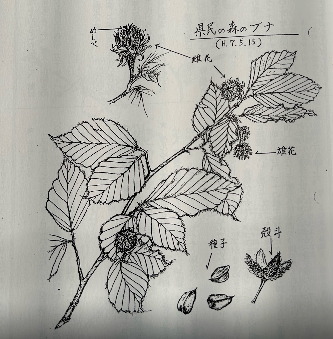 県民の森のブナ
(H.7.5.15)
めしべ
雌花
雄花
種子
殻斗